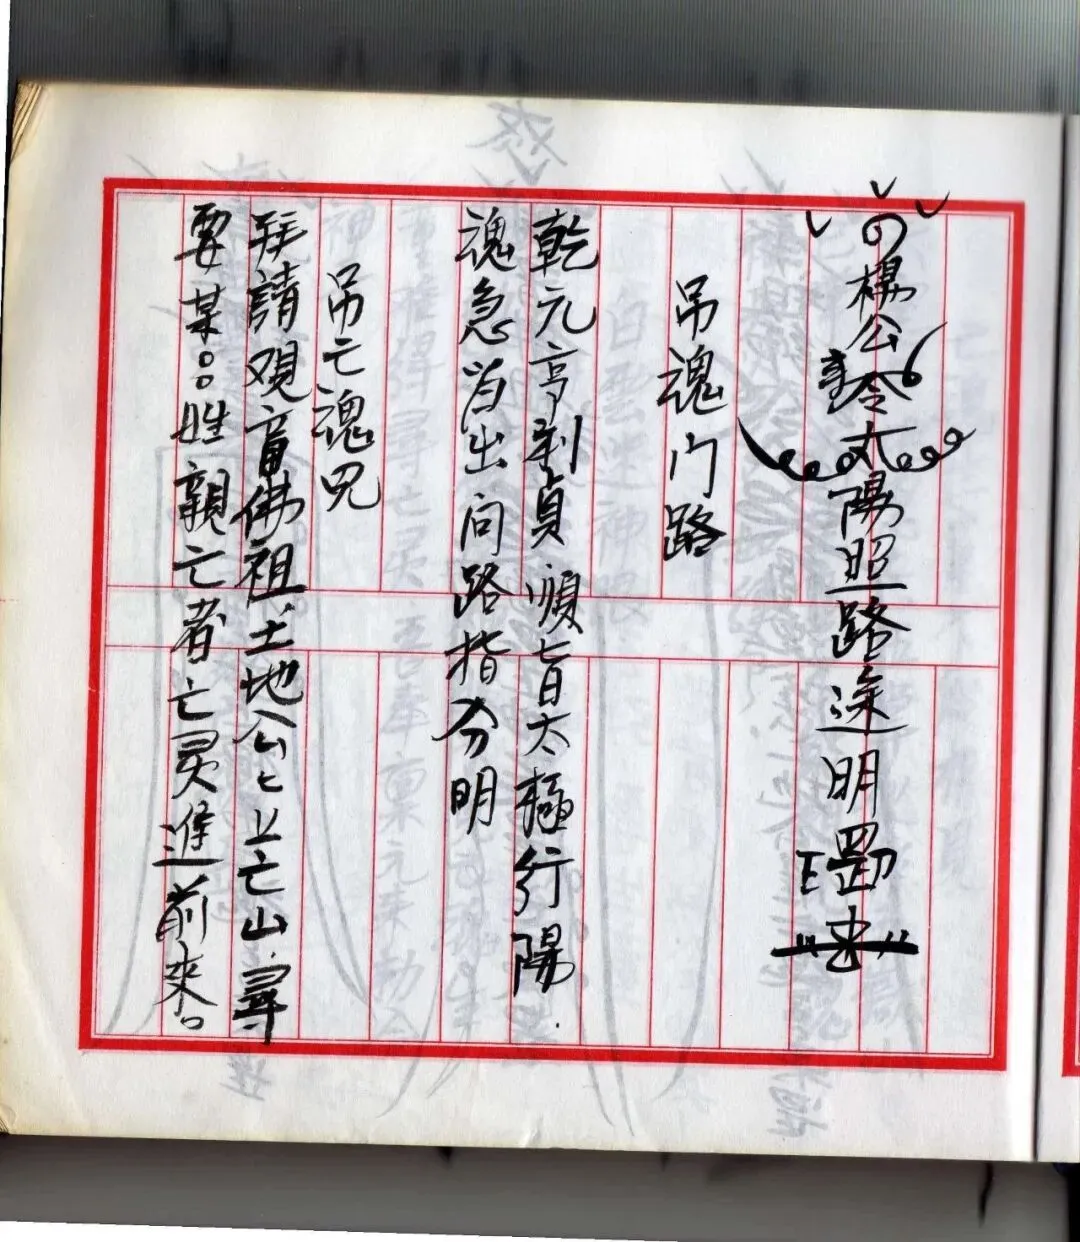 楊公令太陽照路途明罡
吊魂门路
乾元亨利貞順旨太極行陽
魂急旨出问路指分明
吊亡魂咒
拜請观音佛祖土地公〻上亡山尋
要某〇〇姓親亡者亡灵進前來。